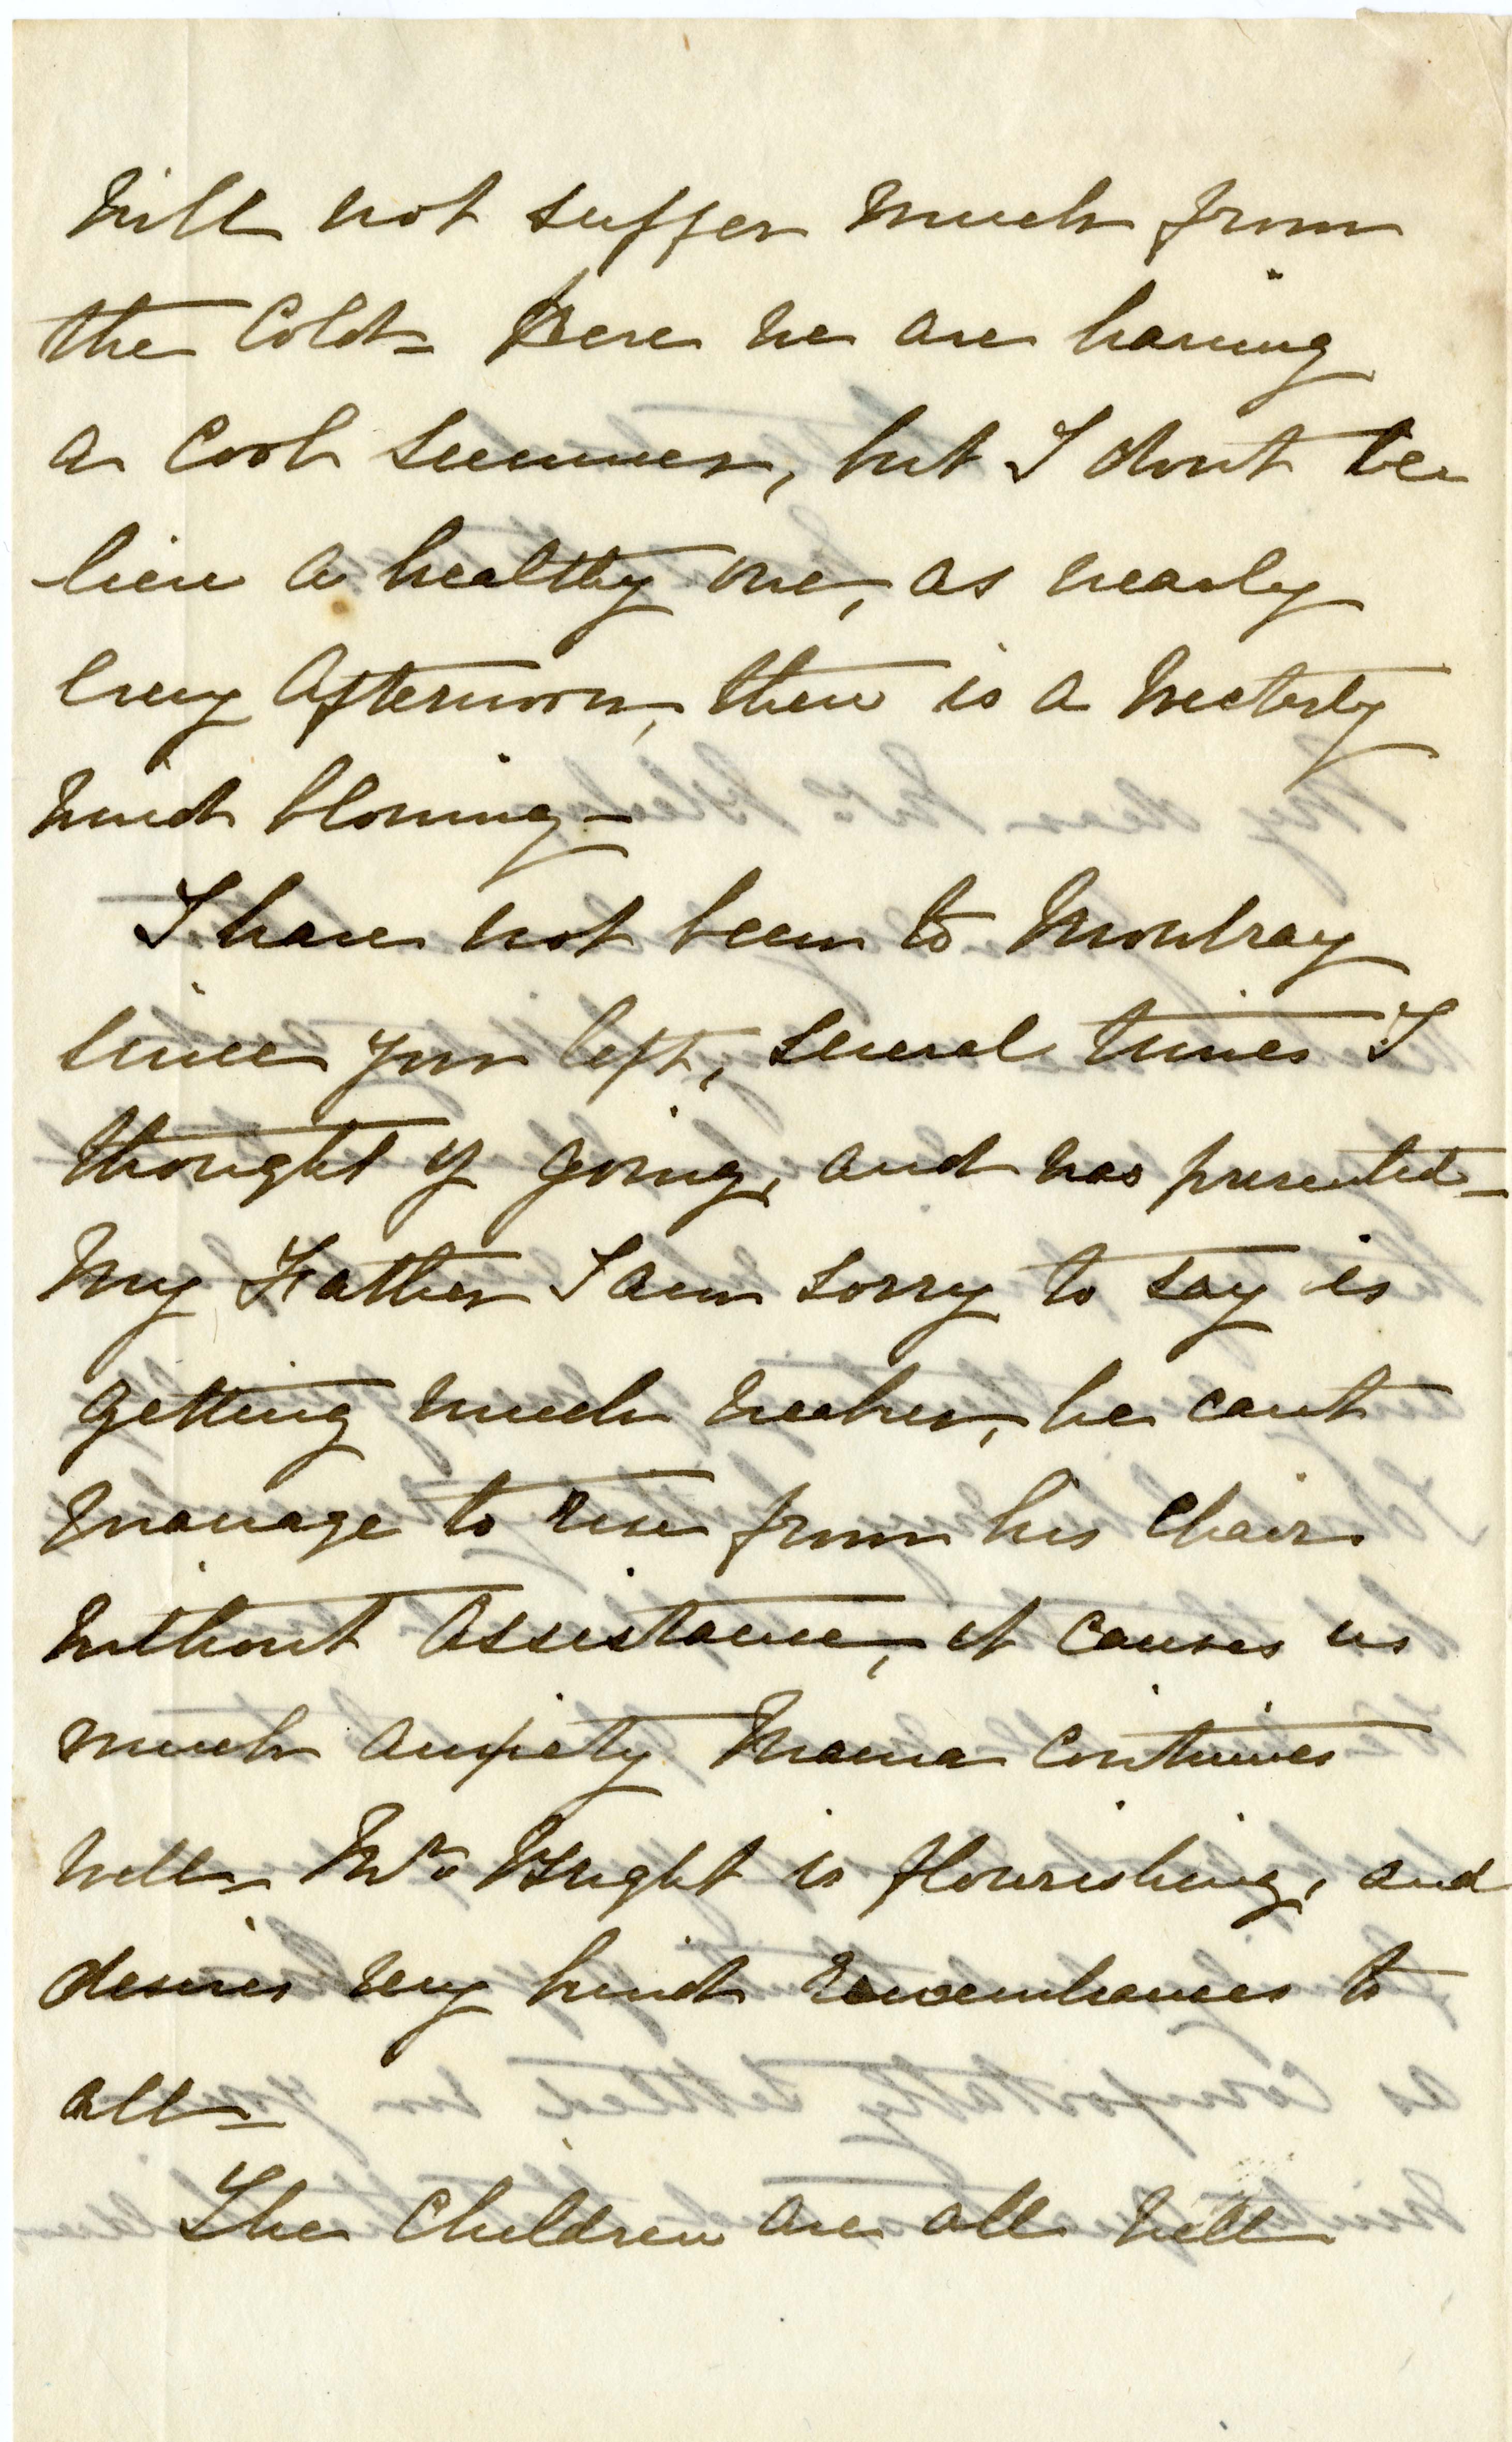 will not suffer much from
the Cold = Here we are having
a Cool Summer, but I dont be
lieve a healthy one, as nearly
every Afternoon, there is a Westerly
wind blowing -
I have not been to Montray
since you left, several times I
thought of going, and was prevented -
My Father I am sorry to say is
getting much weaker, he cant
manage to rise from his Chair
without Assistance, it Causes us
much anxiety Mama Continues
well = Mrs Wright is flourishing, and
desires very kind remembrances to
all =
The Children are all well